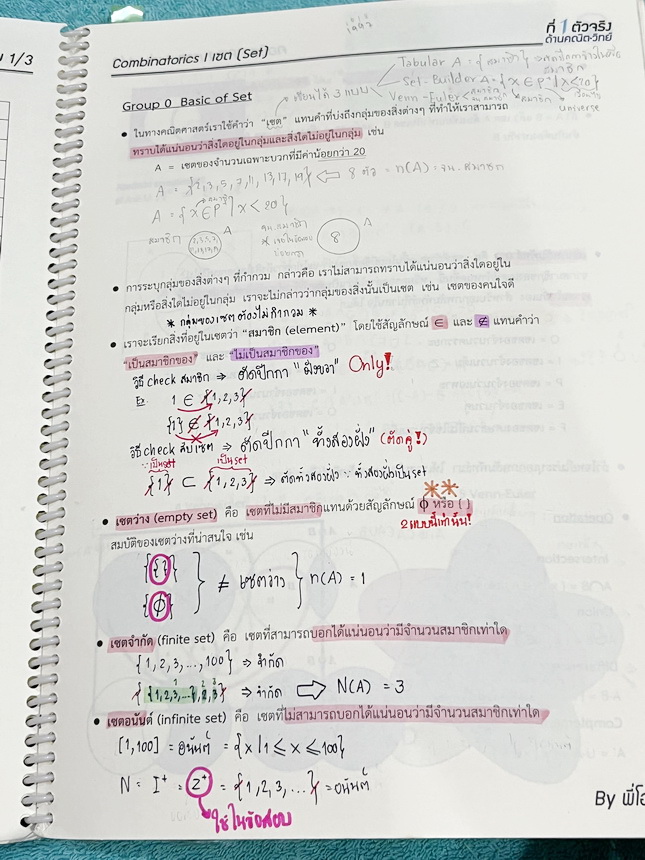 1/3
Combinatorics | เซต (Set)
ที่ 1 ตัวจริง
ด้านคณิต-วิทย์
Group 0 Basic of Set
เขียนได้ 3 แบบ
Tabular A = {สมาชิก}
สมาชิก
Set-Builder A = {x ∈ P⁺ | x < 20}
Venn-Euler
สมาชิก
universe
• ในทางคณิตศาสตร์เราใช้คำว่า "เซต" แทนคำที่บ่งถึงกลุ่มของสิ่งต่างๆ ที่ทำให้เราสามารถ
ทราบได้แน่นอนว่าสิ่งใดอยู่ในกลุ่มและสิ่งใดไม่อยู่ในกลุ่ม เช่น
A = เซตของจำนวนเฉพาะบวกที่มีค่าน้อยกว่า 20
A = {2,3,5,7,11,13,17,19} ⇐ 8 ตัว = n(A) = จน. สมาชิก
สมาชิก
A = {x ∈ P | x < 20}
สมาชิก A จน.สมาชิก 8 A
• การระบุกลุ่มของสิ่งต่างๆ ที่กำกวม กล่าวคือ เราไม่สามารถทราบได้แน่นอนว่าสิ่งใดอยู่ใน
กลุ่มหรือสิ่งใดไม่อยู่ในกลุ่ม เราจะไม่กล่าวว่ากลุ่มของสิ่งนั้นเป็นเซต เช่น เซตของคนใจดี
* กลุ่มของเซตต้องไม่กำกวม *
• เราจะเรียกสิ่งที่อยู่ในเซตว่า "สมาชิก (element)" โดยใช้สัญลักษณ์ ∈ และ ∉ แทนคำว่า
"เป็นสมาชิกของ" และ "ไม่เป็นสมาชิกของ"
วิธี check สมาชิก ⇒ ตัดปีกกา "ฝั่งขวา" Only!
Ex. 1 ∈ {1,2,3}
{1} ∉ {1,2,3}
วิธี check สับเซต ⇒ ตัดปีกกา "ทั้งสองฝั่ง" (ตัดคู่!)
∵ เป็นset เป็นset
{1} ⊂ {1,2,3} ⇒ ตัดทั้งสองฝั่ง ∵ ทั้งสองฝั่งเป็น set
• เซตว่าง (empty set) คือ เซตที่ไม่มีสมาชิกแทนด้วยสัญลักษณ์ ϕ หรือ { }
2 แบบนี้เท่านั้น!
สมบัติของเซตว่างที่น่าสนใจ เช่น
{{}}
{ϕ} } ≠ เซตว่าง } n(A) = 1
• เซตจำกัด (finite set) คือ เซตที่สามารถบอกได้แน่นอนว่ามีจำนวนสมาชิกเท่าใด
{1,2,3,...,100} ⇒ จำกัด
1 2 3
{{1,2,3,...},2,3} ⇒ จำกัด ⇒ N(A) = 3
• เซตอนันต์ (infinite set) คือ เซตที่ไม่สามารถบอกได้แน่นอนว่ามีจำนวนสมาชิกเท่าใด
[1,100] = อนันต์ = {x | 1 ≤ x ≤ 100}
N = I⁺ = Z⁺ = {1,2,3,...} = อนันต์
ใช้ในข้อสอบ
By พี่โอ